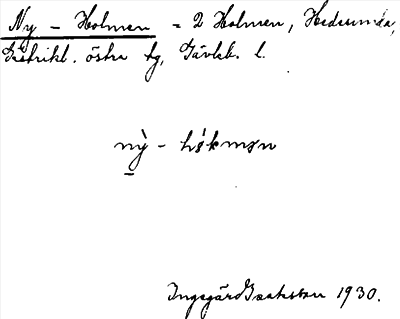 Ny - Holmen = 2 Holmen, Hedesunda,
Gästrikl. östra tg, Gävleb. l.
nỳ - hǿkmøn
Ingegärd Isakson 1930.